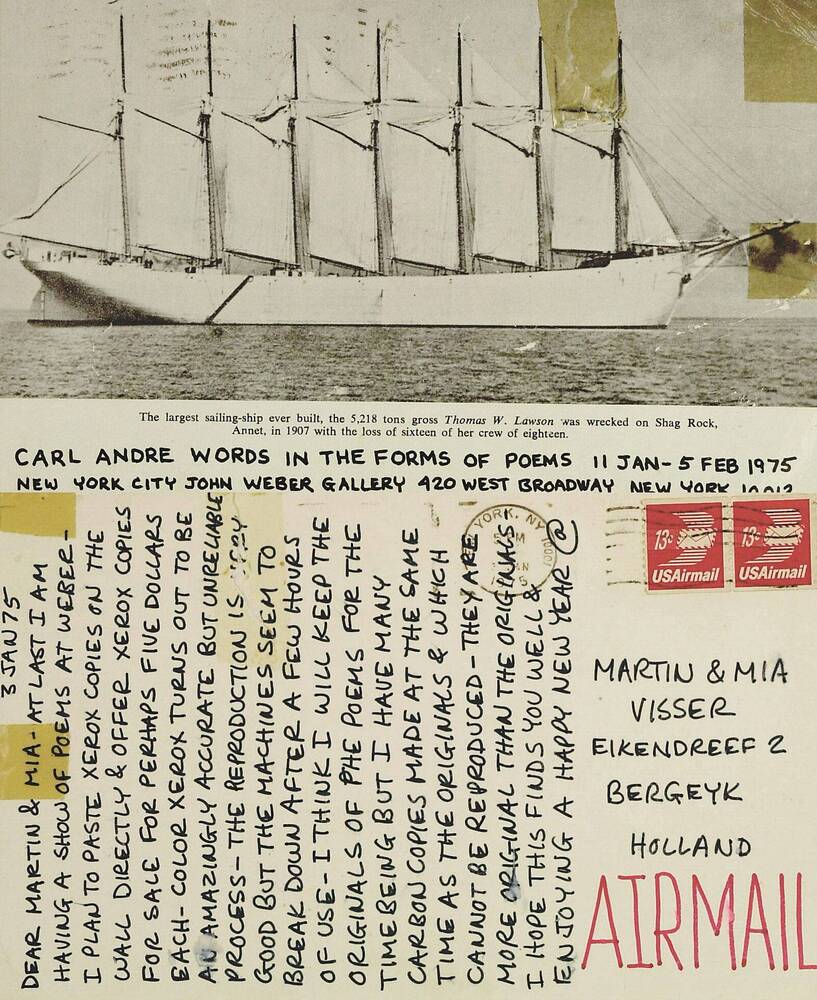 The largest sailing-ship ever built, the 5,218 tons gross Thomas W. Lawson was wrecked on Shag Rock,
Annet, in 1907 with the loss of sixteen of her crew of eighteen.
CARL ANDRE WORDS IN THE FORMS OF POEMS 11 JAN-5 FEB 1975
NEW YORK CITY JOHN WEBER GALLERY 420 WEST BROADWAY NEW YORK 10012
3 JAN 75
DEAR MARTIN & MIA-AT LAST I AM
HAVING A SHOW OF POEMS AT WEBER-
I PLAN TO PASTE XEROX COPIES ON THE
WALL DIRECTLY & OFFER XEROX COPIES
FOR SALE FOR PERHAPS FIVE DOLLARS
EACH-COLOR XEROX TURNS OUT TO BE
AN AMAZINGLY ACCURATE BUT UNRELIABLE
PROCESS-THE REPRODUCTION IS VERY
GOOD BUT THE MACHINES SEEM TO
BREAK DOWN AFTER A FEW HOURS
OF USE-I THINK I WILL KEEP THE
ORIGINALS OF PHE POEMS FOR THE
TIME BEING BUT I HAVE MANY
CARBON COPIES MADE AT THE SAME
TIME AS THE ORIGINALS & WHICH
CANNOT BE REPRODUCED-THEY ARE
MORE ORIGINAL THAN THE ORIGINALS!
I HOPE THIS FINDS YOU WELL &
ENJOYING A HAPPY NEW YEAR @
YORK, N.Y.
13c
USAirmail
13c
USAirmail
MARTIN & MIA
VISSER
EIKENDREEF 2
BERGEYK
HOLLAND
AIRMAIL